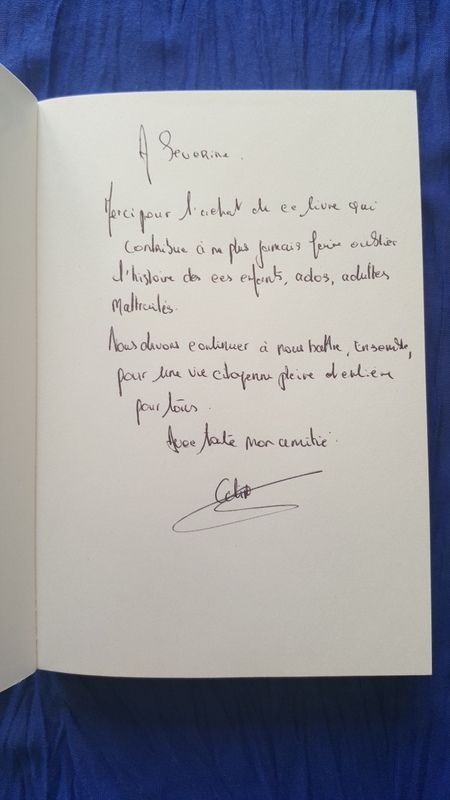 A Severine.
Merci pour l'achat de ce livre qui
contribue à ne plus jamais faire oublier
l'histoire des ces enfants, ados, adultes
Maltraités.
Nous devons continuer à nous battre, Ensemble,
pour une vie citoyenne pleine et entière
pour tous.
Avec toute mon amitié.